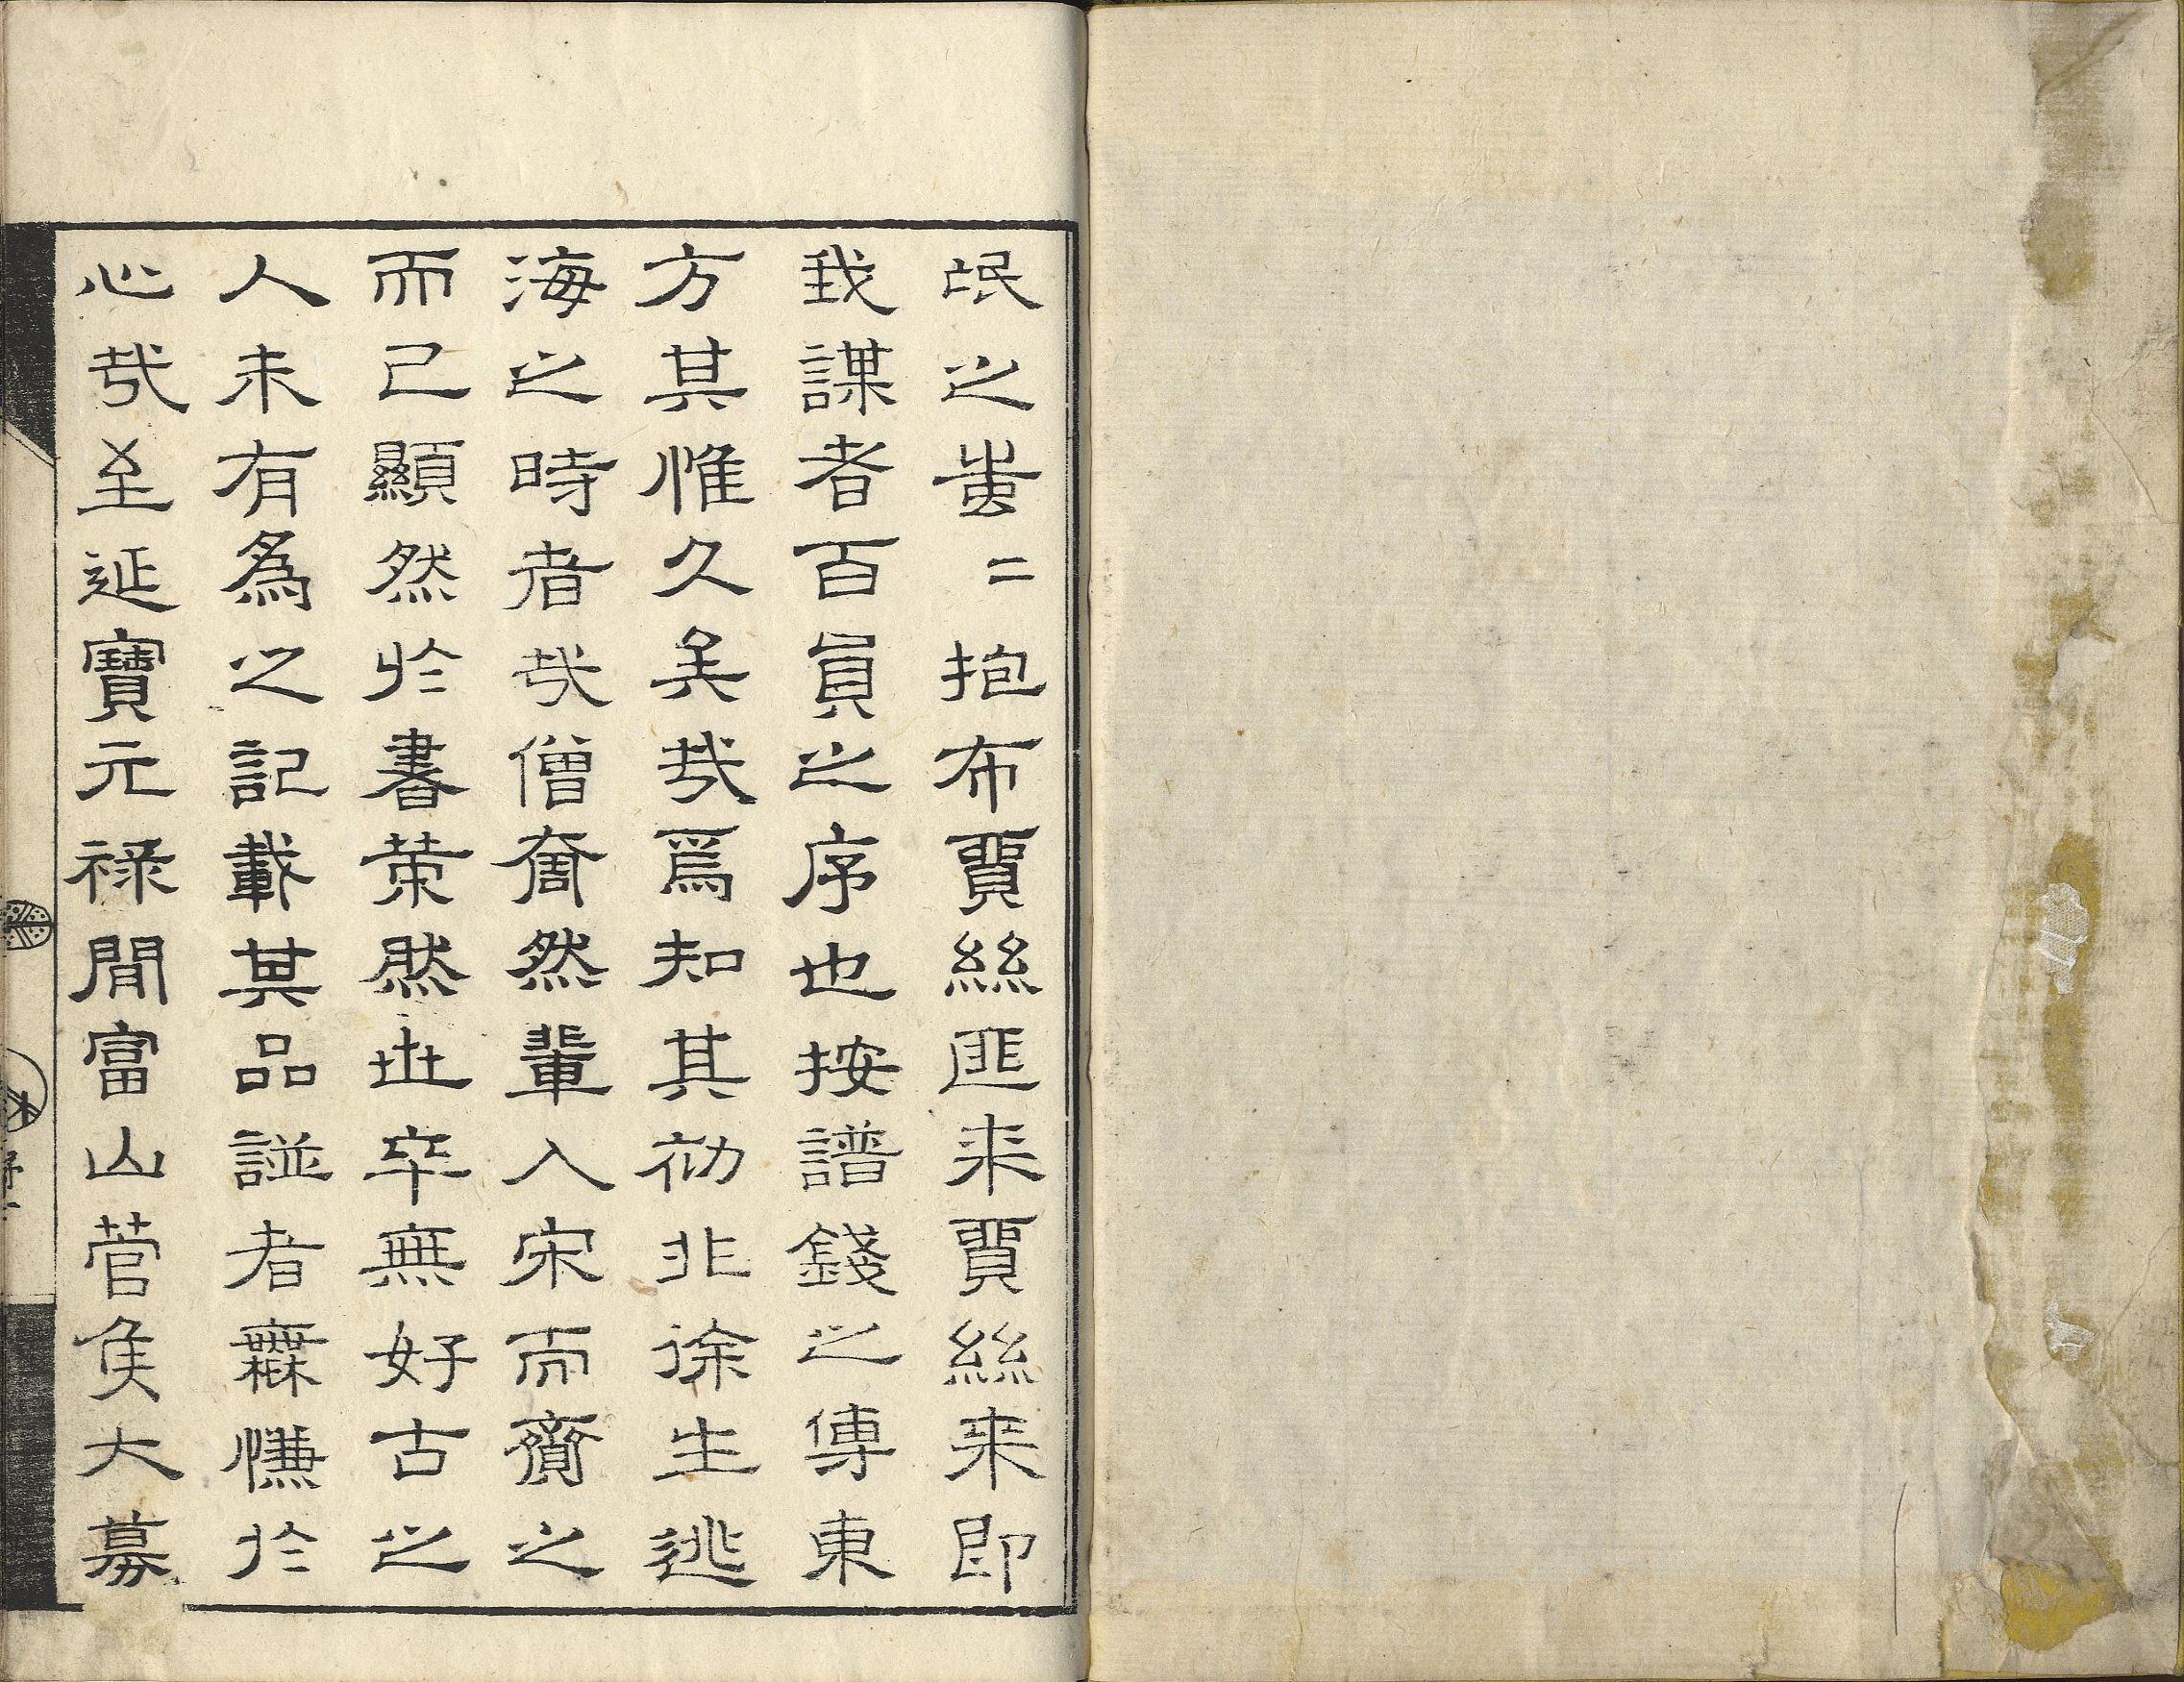 氓之蚩〻抱布貿絲匪来貿絲来即
我謀者百員之序也按譜錢之傳東
方其惟久矣哉焉知其初非徐生逃
海之時者哉僧奝然輩入宋而齎之
而已顯然於書策然世卒無好古之
人未有為之記載其品諩者橆慊於
心哉至延寶元禄間富山菅侯大募